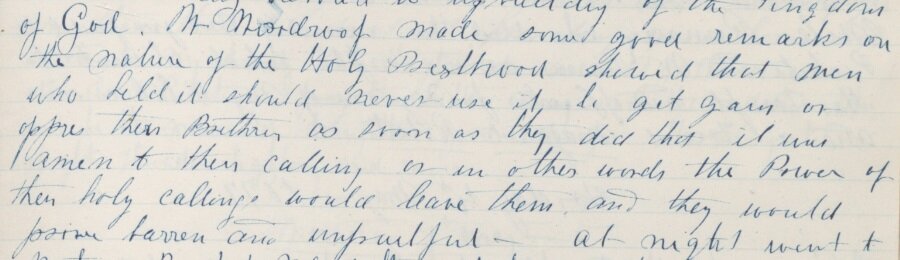 upbuilding of the Kingdom
of God. W Woodroof made some good remarks on
the nature of the Holy Presthood shewed that men
who held it should never use it to get gain or
oppres then Brethrin as soon as they did that it was
amen to then calling or in other words the Power of
then holy callings would leave them. and they would
prove barren and unfruitful - at night went to